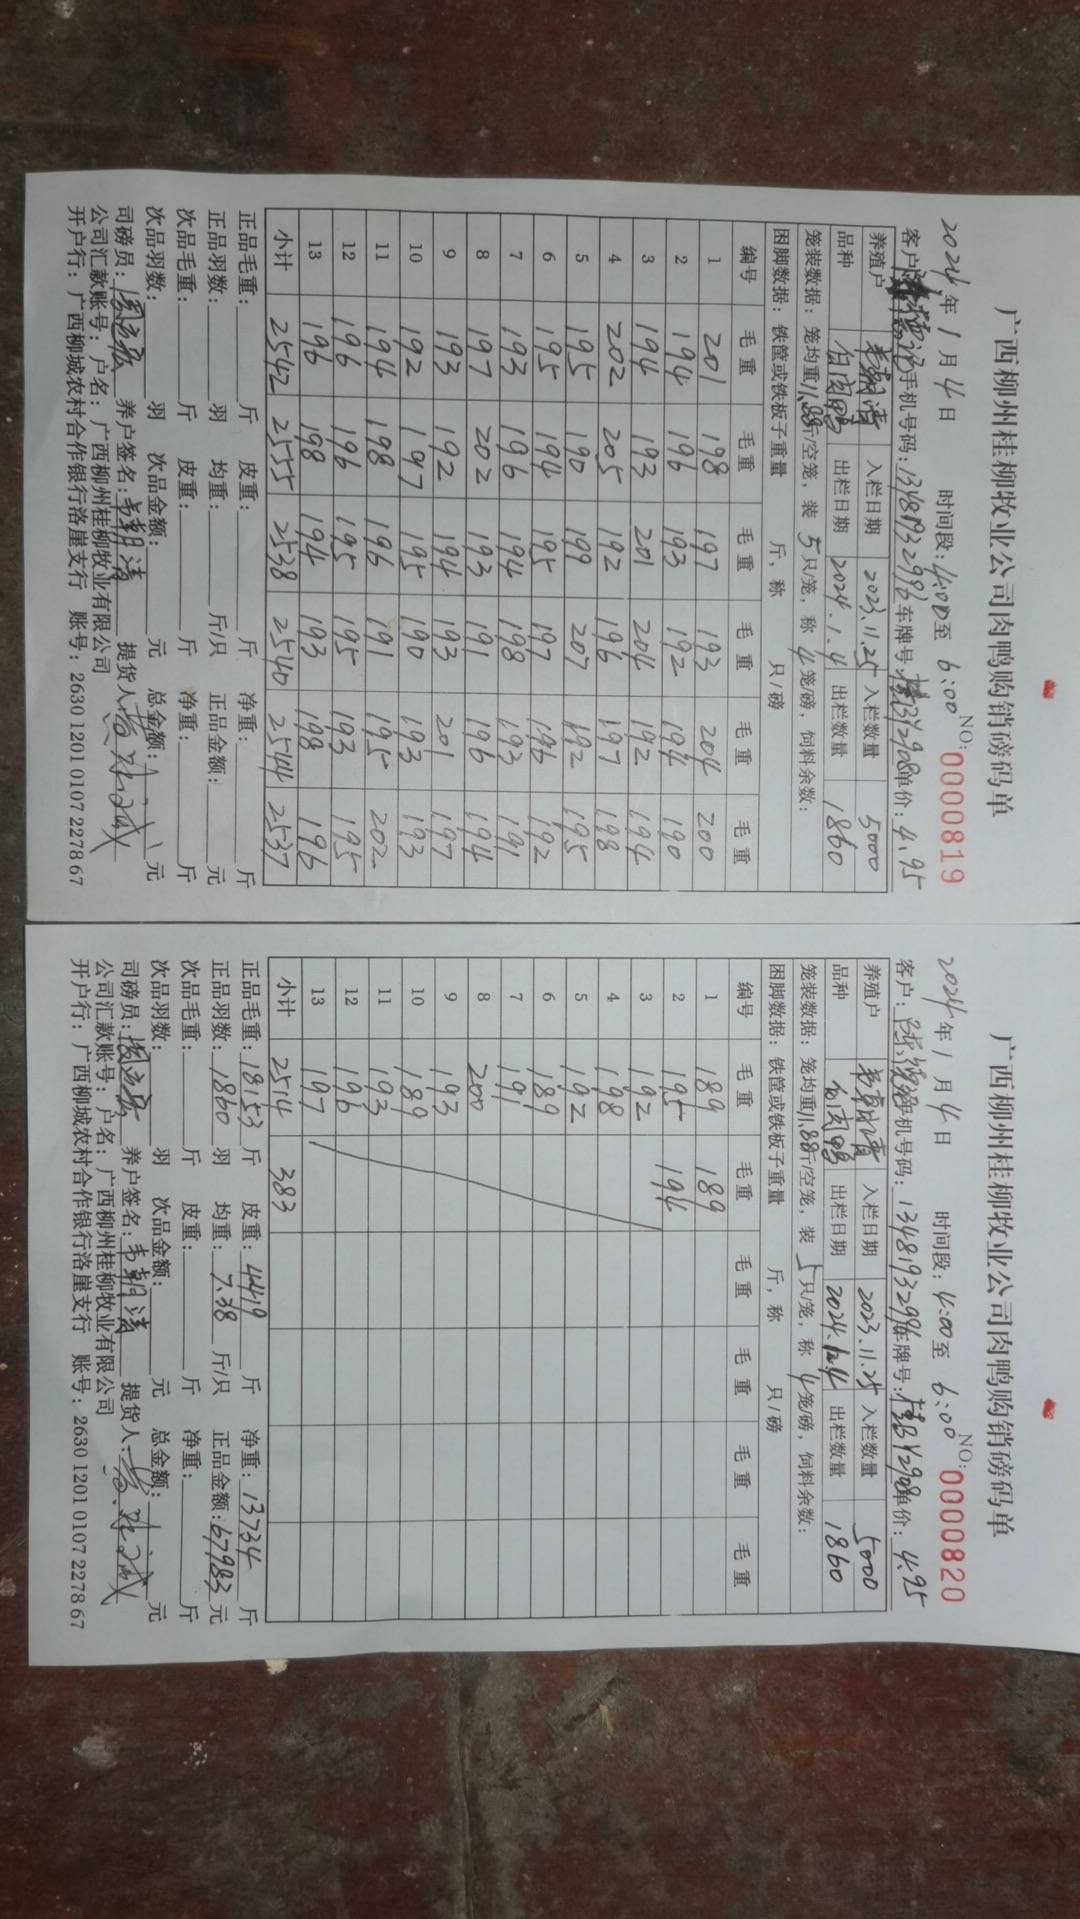 广西柳州桂柳牧业公司肉鸭购销磅码单
NO: 0000819
2024年1月4日 时间段: 4:00至6:00
客户 手机号码: 13481932996 车牌号: 单价: 4.95
养殖户 韦朝清 入栏日期 2023.11.25 入栏数量 5000
品种 白肉鸭 出栏日期 2024.1.4 出栏数量 1860
笼装数据: 笼均重11.88斤/空笼, 装5只/笼, 称4笼/磅, 饲料余数:
困脚数据: 铁筐或铁板子重量 斤, 称 只/磅
编号 毛重 毛重 毛重 毛重 毛重 毛重
1 201 198 197 193 204 200
2 194 196 193 192 194 190
3 194 193 201 204 192 194
4 202 205 192 196 197 198
5 195 190 199 207 192 195
6 195 194 195 197 196 192
7 193 196 194 198 193 191
8 197 202 193 191 196 194
9 193 192 194 193 201 197
10 192 197 195 190 193 193
11 194 198 196 191 195 202
12 196 196 195 195 193 195
13 196 198 194 193 198 196
小计 2542 2555 2538 2540 2544 2537
正品毛重: 斤 皮重: 斤 净重: 斤
正品羽数: 羽 均重: 斤/只 正品金额: 元
次品毛重: 斤 皮重: 斤 净重: 斤
次品羽数: 羽 次品金额: 元 总金额: 元
司磅员: 养户签名: 韦朝清 提货人:
公司汇款账号: 户名: 广西柳州桂柳牧业有限公司
开户行: 广西柳城农村合作银行洛崖支行 账号: 2630 1201 0107 2278 67
广西柳州桂柳牧业公司肉鸭购销磅码单
NO: 0000820
2024年1月4日 时间段: 4:00至6:00
客户: 手机号码: 13481932996 车牌号: 单价: 4.95
养殖户 韦朝清 入栏日期 2023.11.25 入栏数量 5000
品种 白肉鸭 出栏日期 出栏数量 1860
笼装数据: 笼均重11.88斤/空笼, 装5只/笼, 称4笼/磅, 饲料余数:
困脚数据: 铁筐或铁板子重量 斤, 称 只/磅
编号 毛重 毛重 毛重 毛重 毛重 毛重
1 189 189
2 195 194
3 192
4 198
5 192
6 189
7 191
8 200
9 193
10 189
11 193
12 196
13 197
小计 2514 383
正品毛重: 18153斤 皮重: 4419斤 净重: 13734斤
正品羽数: 1860羽 均重: 7.38斤/只 正品金额: 67983元
次品毛重: 斤 皮重: 斤 净重: 斤
次品羽数: 羽 次品金额: 元 总金额: 元
司磅员: 养户签名: 韦朝清 提货人:
公司汇款账号: 户名: 广西柳州桂柳牧业有限公司
开户行: 广西柳城农村合作银行洛崖支行 账号: 2630 1201 0107 2278 67